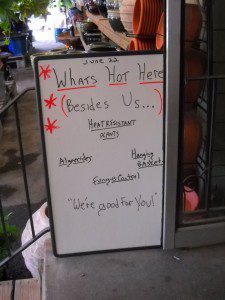 June 22
* Whats Hot Here
* (Besides Us...)
* Heat Resistant
plants
Algaecides
Hanging
Baskets
Fungus Control
"We're good for You!"